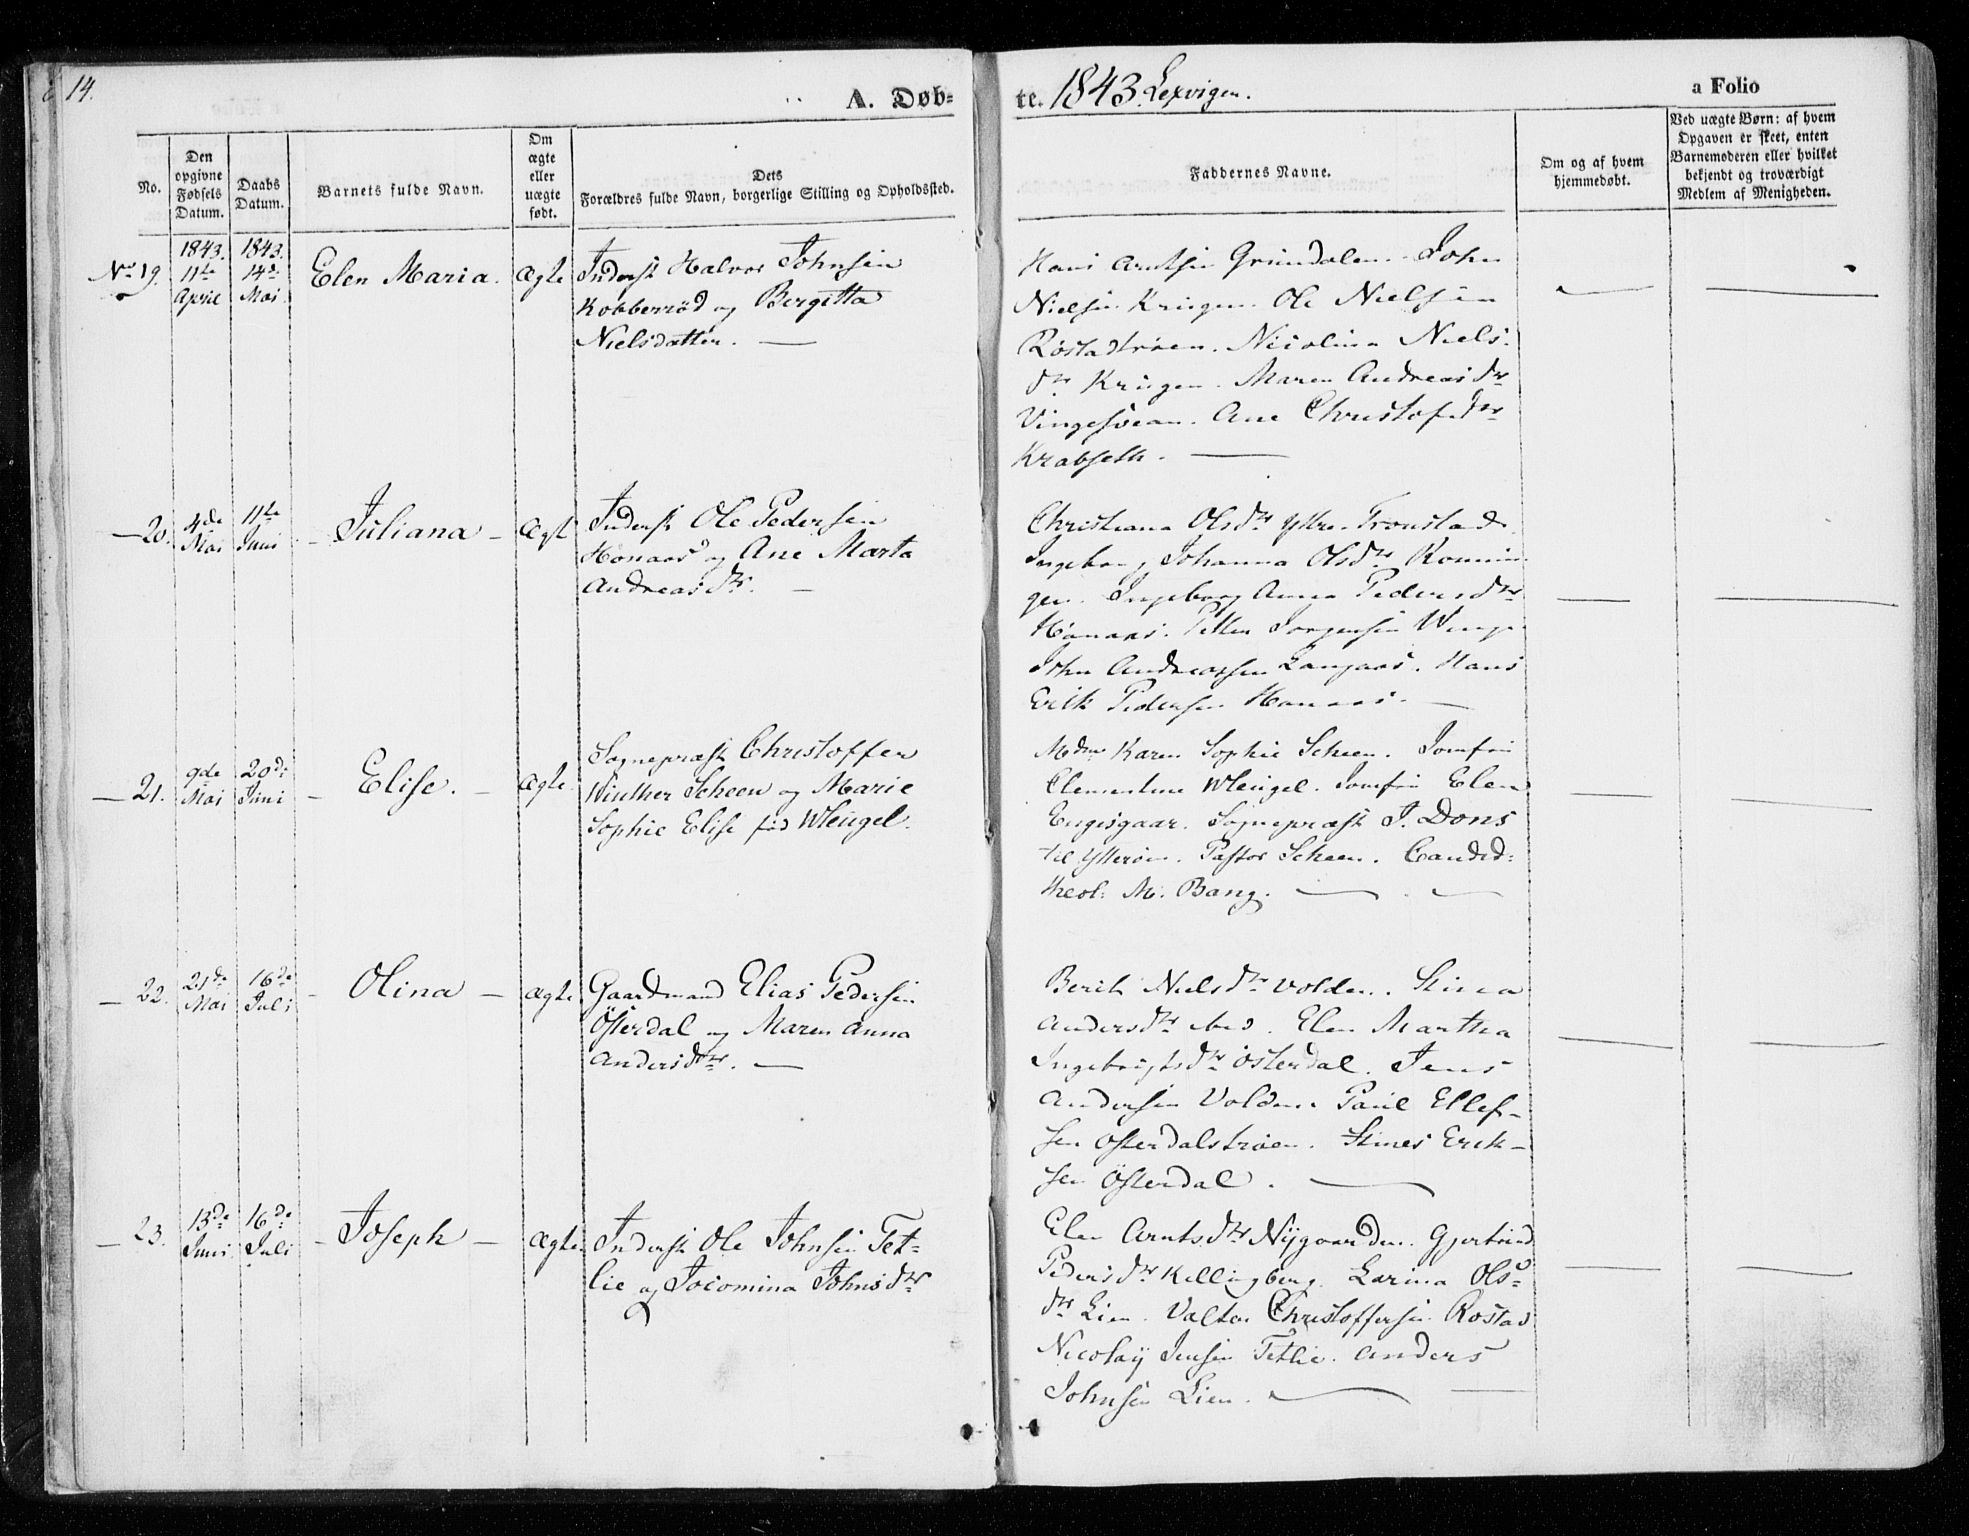 14.
A. Døb-
te. 1843. Lexvigen.
a Folio
No.
Den opgivne Fødsels Datum.
Daabs Datum.
Barnets fulde Navn.
Om ægte eller uægte født.
Dets
Forældres fulde Navn, borgerlige Stilling og Opholdssted.
Faddernes Navne.
Om og af hvem hjemmedøbt.
Ved uægte Børn: af hvem
Opgaven er skeet, enten
Barnemoderen eller hvilket
bekjendt og troværdigt
Medlem af Menigheden.
No 19.
1843. 11te April
1843. 14de Mai
Elen Maria.
Ægte
Inderst Halvor Johnsen
Kobberrød og Bergitta
Nielsdatter. —
Hans Arntsen Grandalen. John
Nielsen Kringen. Ole Nielsen
Røstadtrøen. Nicolina Niels-
dtr Kringen. Maren Andreasdtr
Vingesvean. Ane Christofdtr
Krabseth. —
— 20.
4de Mai
11te Juni
— Juliana —
Ægt
Inderst Ole Pedersen
Hønaas og Ane Marta
Andreasdtr. —
Christiana Olsdtr Yttre Tronstad
Ingeborg Johanna Olsdtr
gen. Ingeborg Anna Pedersdtr
Hønaas. Petter Jørgensen Winge
John Andreassen Langaas. Hans
Erik Pedersen Hønaas. —
— 21.
9de Mai
20de Juni
— Elise. —
Ægte
Sognepræst Christoffer
Winther Scheen og Marie
Sophie Elise fød Wleugel.
Mdme Karen Sophie Scheen. Jomfru
Clementine Wleugel. Jomfru Elen
Engisgaar. Sognepræst J. Dons
til Ytterøen. Pastor Scheen. Candid:
theol: M. Bang. —
— 22.
21de Mai
16de Juli
— Olina —
Ægte
Gaardmand Elias Pedersen
Østerdal og Maren Anna
Andersdtr. —
Berit Nielsdtr Volden. Stina
Andersdtr ibid. Elen Martha
Ingebrigtsdtr Østerdal. Jens
Andersen Volden. Paul Ellef-
sen Østerdalstrøen. Stines Erik-
sen Østerdal. —
— 23.
13de Juni
16de Juli
— Joseph —
Ægte
Inderst Ole Johnsen Tet-
lie og Jocomina Johnsdtr
Elen Arntsdtr Nygaarden. Gjertrud
Pedersdtr Kellingberg. Larina Ols-
dtr Lien. Valter Christoffersen Røstad
Nicolay Jensen Tetlie. Anders
Johnsen Lien. —